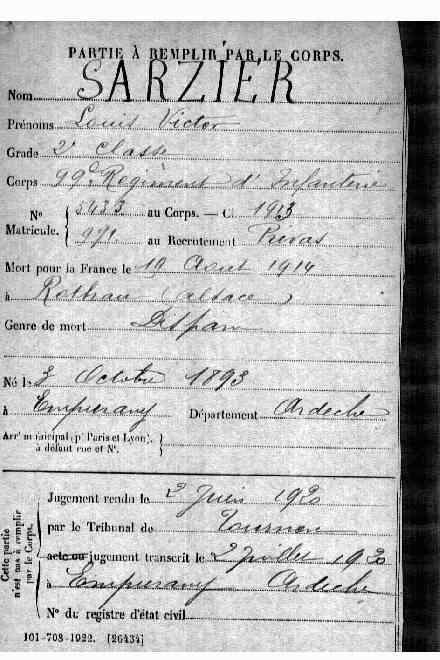 PARTIE À REMPLIR PAR LE CORPS.
Nom SARZIER
Prénoms Louis Victor
Grade 2e Classe
Corps 99e Régiment d'Infanterie
No Matricule. { 5433 au Corps. — Cl. 1913
971 au Recrutement Privas
Mort pour la France le 19 Août 1914
à Rothau (alsace)
Genre de mort Disparu
Né le 3 Octobre 1893
à Empurany Département Ardèche
Arr' municipal (p' Paris et Lyon), à défaut rue et N°. }
Cette partie n'est pas à remplir par le Corps.
Jugement rendu le 2 Juin 1920
par le Tribunal de Tournon
acte ou jugement transcrit le 2 Juillet 1920
à Empurany Ardèche
N° du registre d'état civil
101-708-1922. [26434]